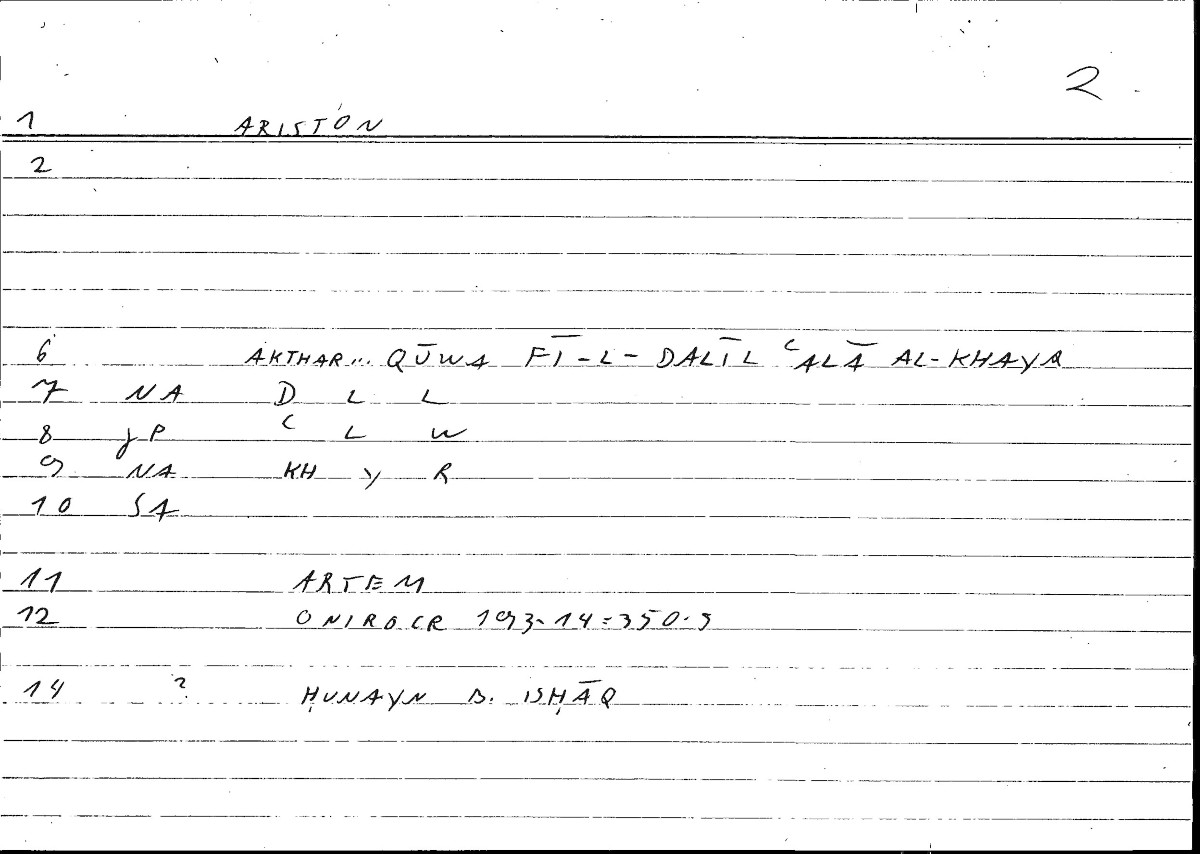 2
1 ARISTÓN
2
6 AKTHAR... QŪWA FĪ-L-DALĪL ʿALĀ AL-KHAYR
7 NA D L L
8 JP ʿ L W
9 NA KH Y R
10 SA
11 ARTEM
12 ONIROCR 193.14=350.5
14 ? ḤUNAYN B. ISḤĀQ